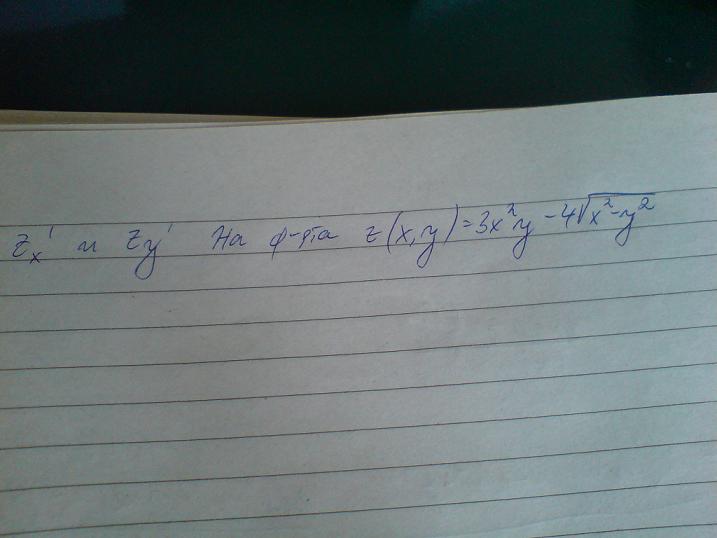 z'ₓ и z'ᵧ На ф-та z(x,y)=3x²y-4√(x²-y²)